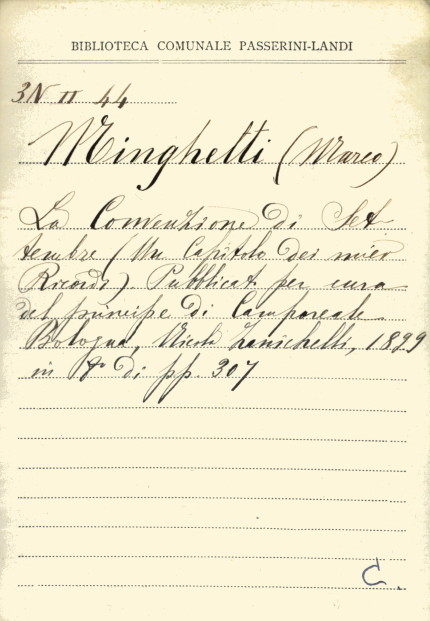 BIBLIOTECA COMUNALE PASSERINI-LANDI
3N II 44
Minghetti (Marco)
La Convenzione di Set-
tembre (Un Capitolo dei miei
Ricordi) Pubblicat. per cura
del principe di Camporeale
Bologna, Nicola Zanichelli, 1899
in 8º di pp. 307
C.